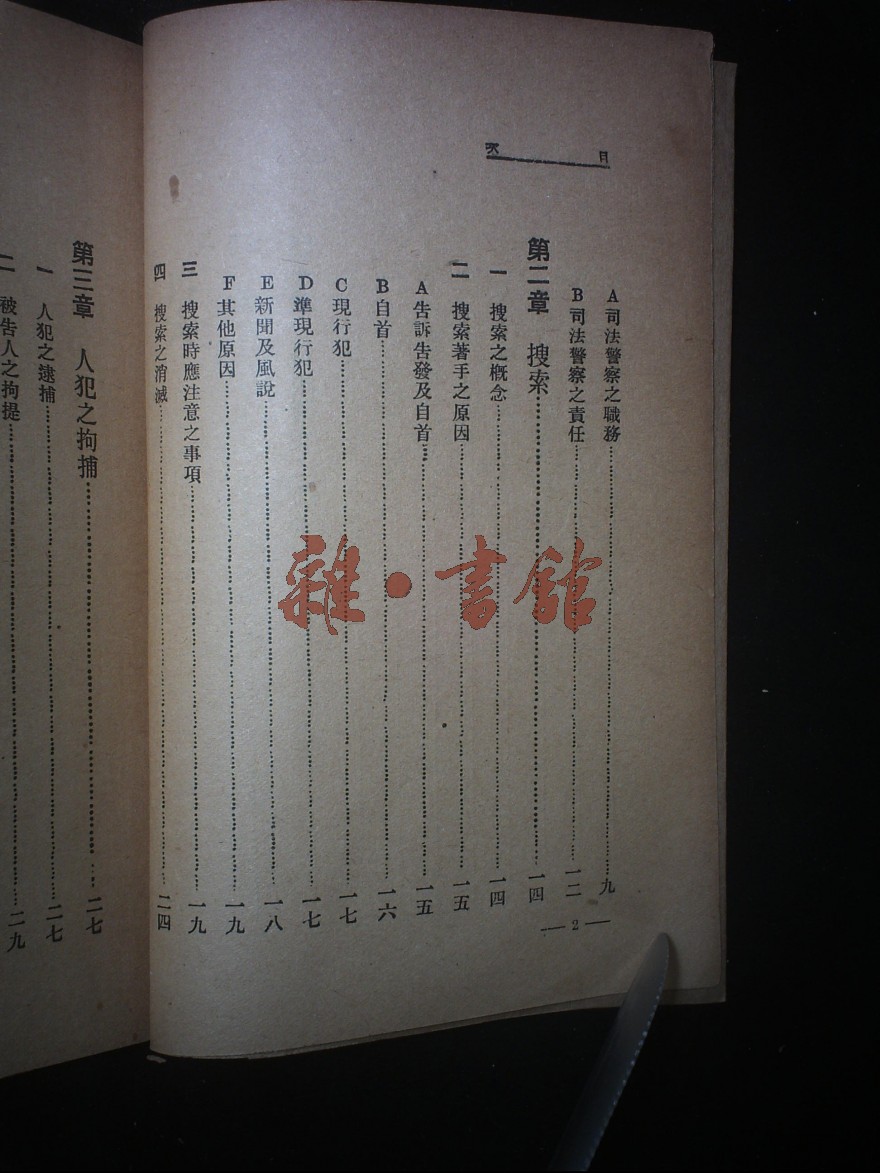 目次
A 司法警察之職務……九
B 司法警察之責任……一二
第二章 搜索……一四
一 搜索之概念……一四
二 搜索著手之原因……一五
A 告訴告發及自首……一五
B 自首……一六
C 現行犯……一七
D 準現行犯……一七
E 新聞及風說……一八
F 其他原因……一九
三 搜索時應注意之事項……一九
四 搜索之消滅……二四
— 2 —
第三章 人犯之拘捕……二七
一 人犯之逮捕……二七
二 被告人之拘提……二九
雜·書館